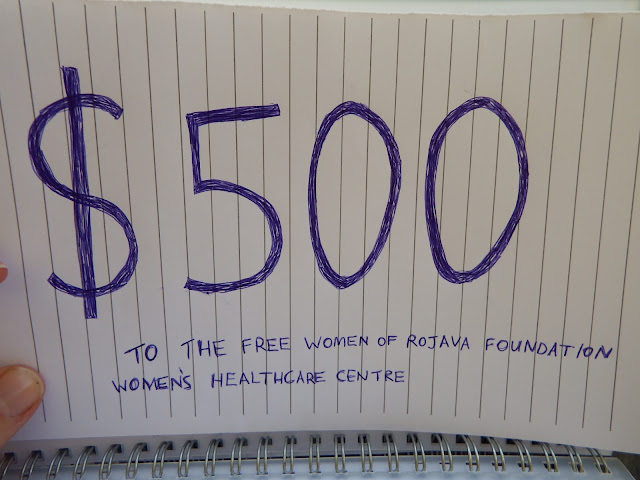 $500
TO THE FREE WOMEN OF ROJAVA FOUNDATION
WOMEN'S HEALTHCARE CENTRE